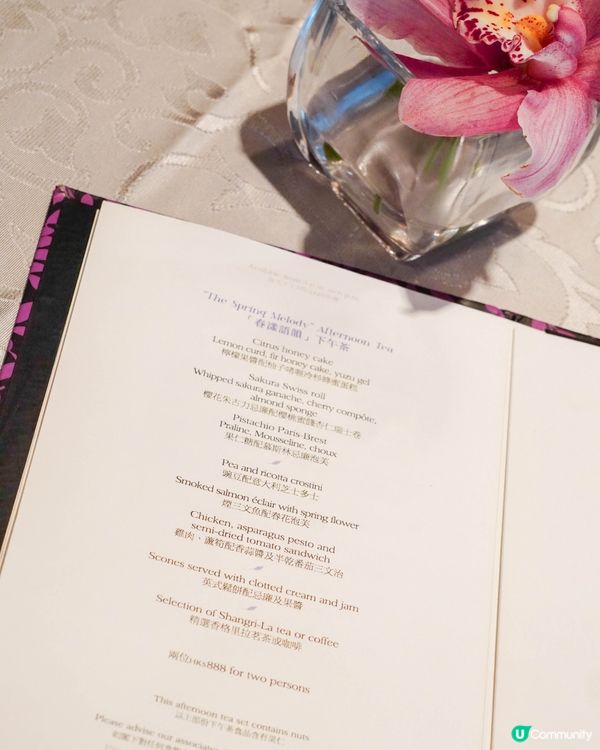 "The Spring Melody" Afternoon Tea
「春漾語韻」下午茶
Citrus honey cake
Lemon curd, fir honey cake, yuzu gel
檸檬果醬配柚子啫喱冷杉蜂蜜蛋糕
Sakura Swiss roll
Whipped sakura ganache, cherry compôte,
almond sponge
櫻花朱古力忌廉配櫻桃蜜餞杏仁瑞士卷
Pistachio Paris-Brest
Praline, Mousseline, choux
果仁糖配慕斯林忌廉泡芙
Pea and ricotta crostini
豌豆配意大利芝士多士
Smoked salmon éclair with spring flower
煙三文魚配春花泡芙
Chicken, asparagus pesto and
semi-dried tomato sandwich
雞肉、蘆筍配香蒜醬及半乾番茄三文治
Scones served with clotted cream and jam
英式鬆餅配忌廉及果醬
Selection of Shangri-La tea or coffee
精選香格里拉茗茶或咖啡
兩位HK$888 for two persons
This afternoon tea set contains nuts
以上部份下午茶食品含有果仁
Please advise our associat
如閣下對任何食
U Community